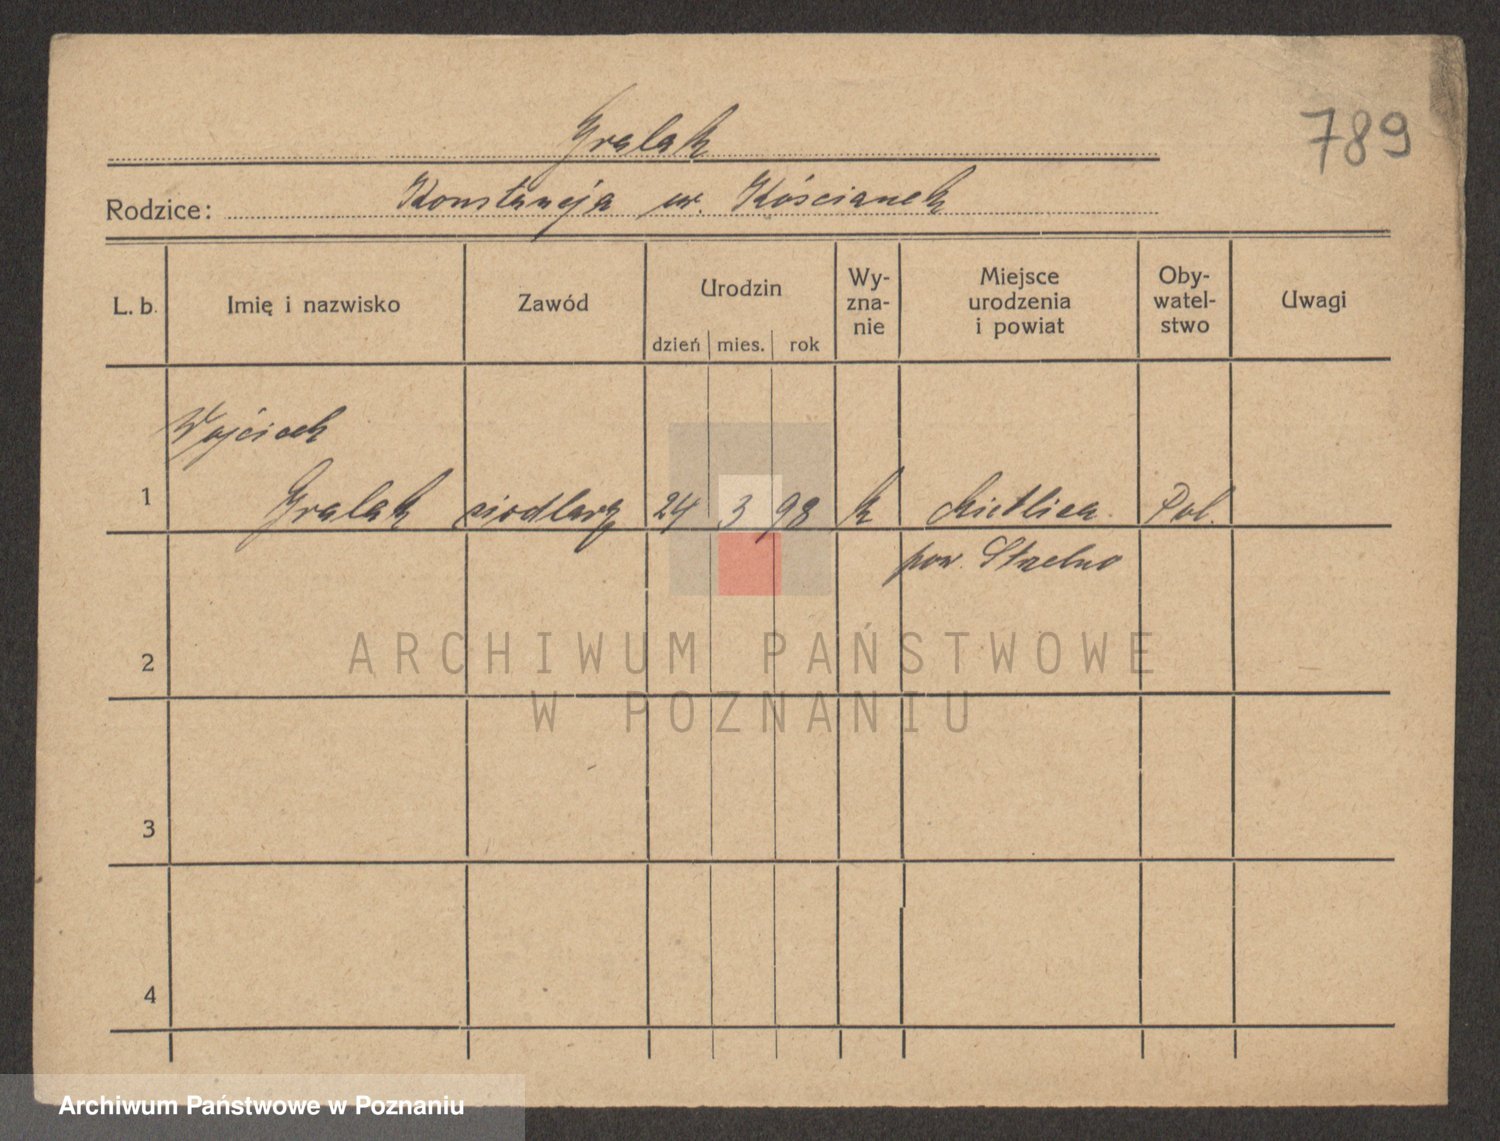 789
Gralak
Rodzice: Konstancja ur. Kościanek
L. b.
Imię i nazwisko
Zawód
Urodzin
dzień mies. rok
Wy-
zna-
nie
Miejsce
urodzenia
i powiat
Oby-
watel-
stwo
Uwagi
Wojciech
1 Gralak siodlarz 24 3 98 k Pol.
pow. Strzelno
2
3
4
ARCHIWUM PAŃSTWOWE
W POZNANIU
Archiwum Państwowe w Poznaniu